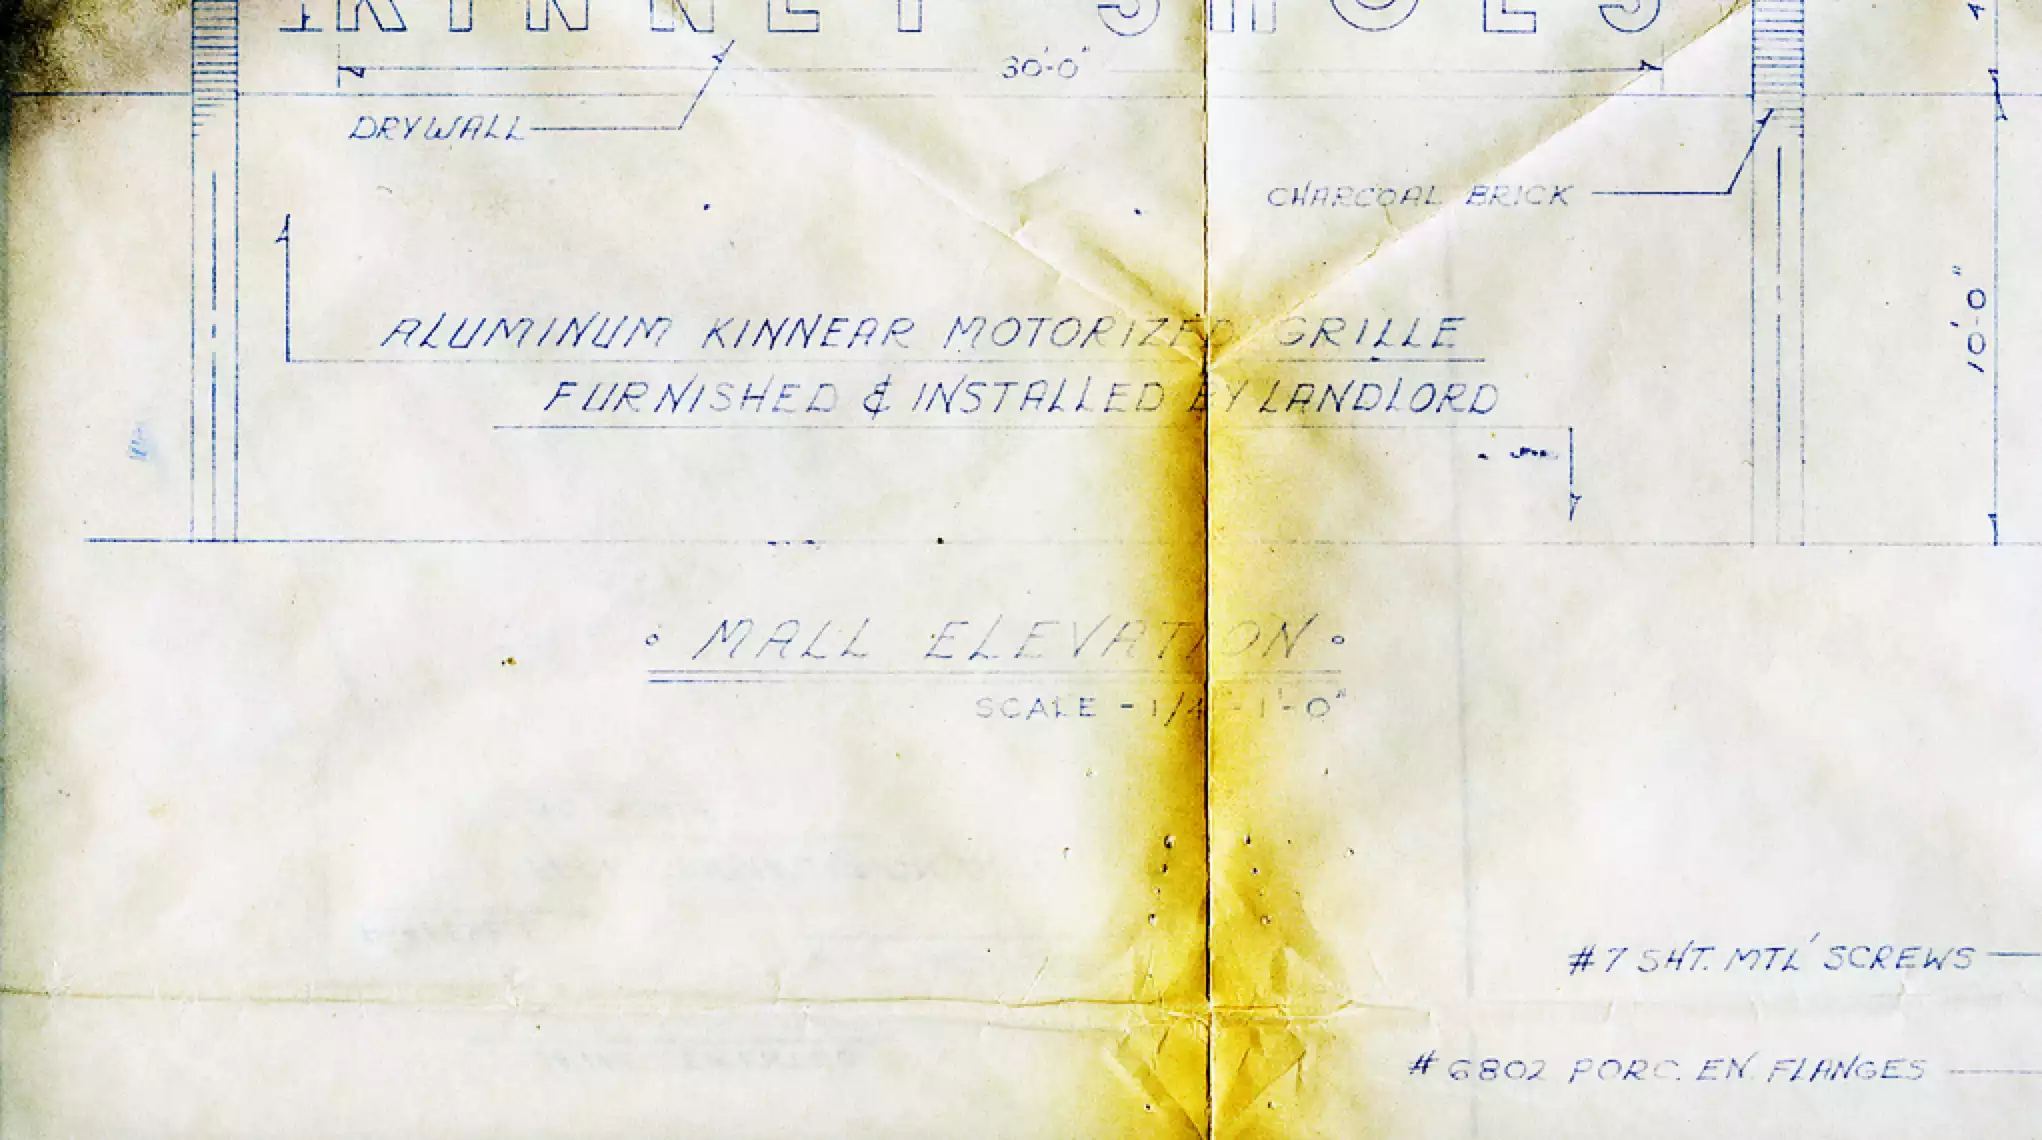 KINNEY SHOES
30'-0"
DRYWALL
CHARCOAL BRICK
10'-0"
ALUMINUM KINNEAR MOTORIZED GRILLE
FURNISHED & INSTALLED BY LANDLORD
MALL ELEVATION
SCALE - 1/4 - 1'-0"
#7 SHT. MTL' SCREWS
#6802 PORC. EN. FLANGES